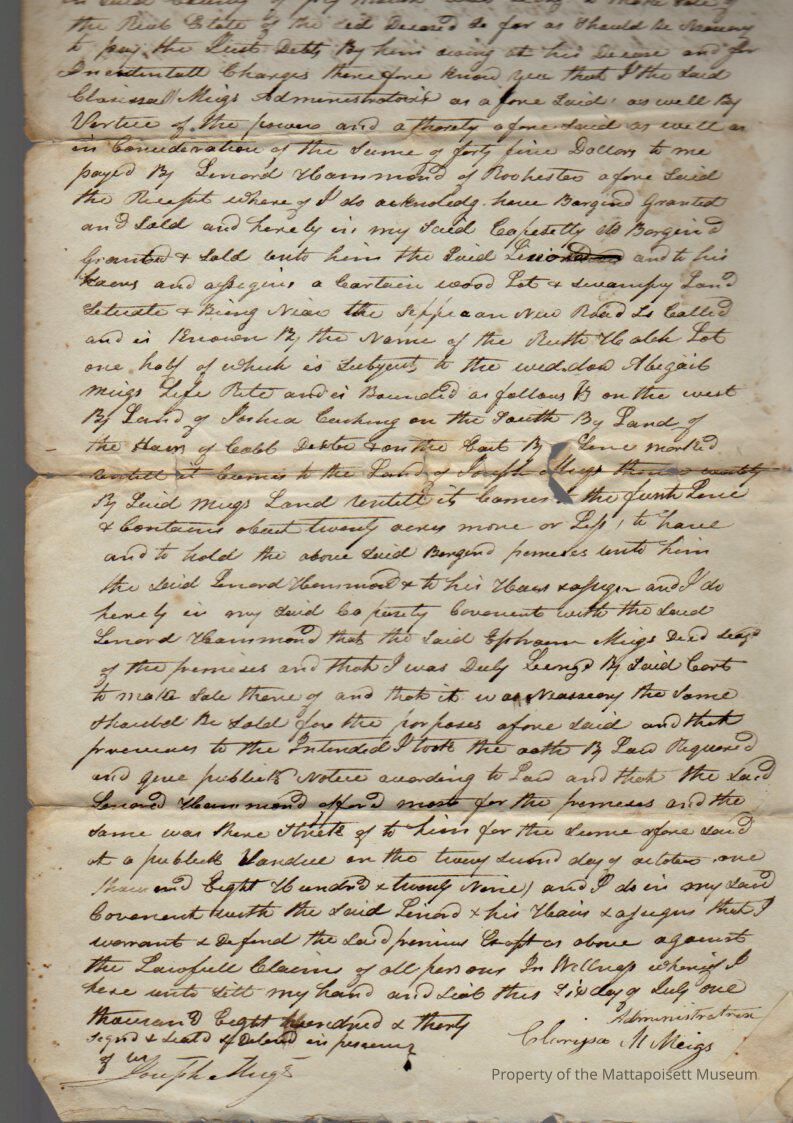 the Real Estate of the sd Deceasd so far as Should be Nessary
to pay the Just Debts By him owing at his Decese and for
Incidentall Charges therefore know yee that I the Said
Clarissa Meigs Administratrix as a fore Said as well By
Vertue of the power and athorety afore Said as well as
in Consideration of the Sume of forty five Dollars to me
payed By Lenord Hammond of Rochester afore Said
the Recept where of I do acknoledg have Bargind Granted
and Sold and hereby in my Said Capesetty do Bargein
Granted & Sold unto him the Said Lenord and to his
Haers and assigns a Certain wood Lot & swampy Land
Setuate & Being Near the Seppican New Road So Called
and is Known By the Name of the Ruth Hatch Lot
one half of which is Subject to the weddow Abegail
Meigs Life Rite and is Bounded as follows on the west
By Land of Joshua Cushing on the South By Land of
the Hairs of Caleb Dexter & on the East By Line marked
untill it Comes to the Land of Joseph Meigs thence westly
By Said Meigs Land untill it Comes the furst Line
& Contains about twenty acres more or Less, to have
and to hold the above Said Bargind premeses unto him
the Said Lenord Hammond & to his Hairs & assigns and I do
hereby in my Said Capesity Covenent with the Said
Lenord Hammond that the Said Ephraim Meigs Died
of the premeses and that I was Duly By Said Cort
to make Sale there of and that it was Nessessery the Same
Should Be Sold for the porposes afore Said and that
preveus to the Intended I took the oath By Law Requered
and gave publick Notice acording to Law and that the Said
Lenord Hammond offord most for the premeses and the
Same was there Struck of to him for the Sume afore Said
at a publick Vandue on the twenty Second day of october one
thousend Eight Hundrd & twenty Nine) and I do in my Said
Covenent with the Said Lenord & his Hairs & assigns that I
warrant & Defend the Said premises as above against
the Lawfull Claims of all persons In Wittness whereof I
here unto Sett my hand and Seal this day of July one
thousand Eight hundred & therty
Administratrix
Segnd & Seald & Deleverd in presence
Clarissa M Meigs
of us
Joseph Meigs
Property of the Mattapoisett Museum